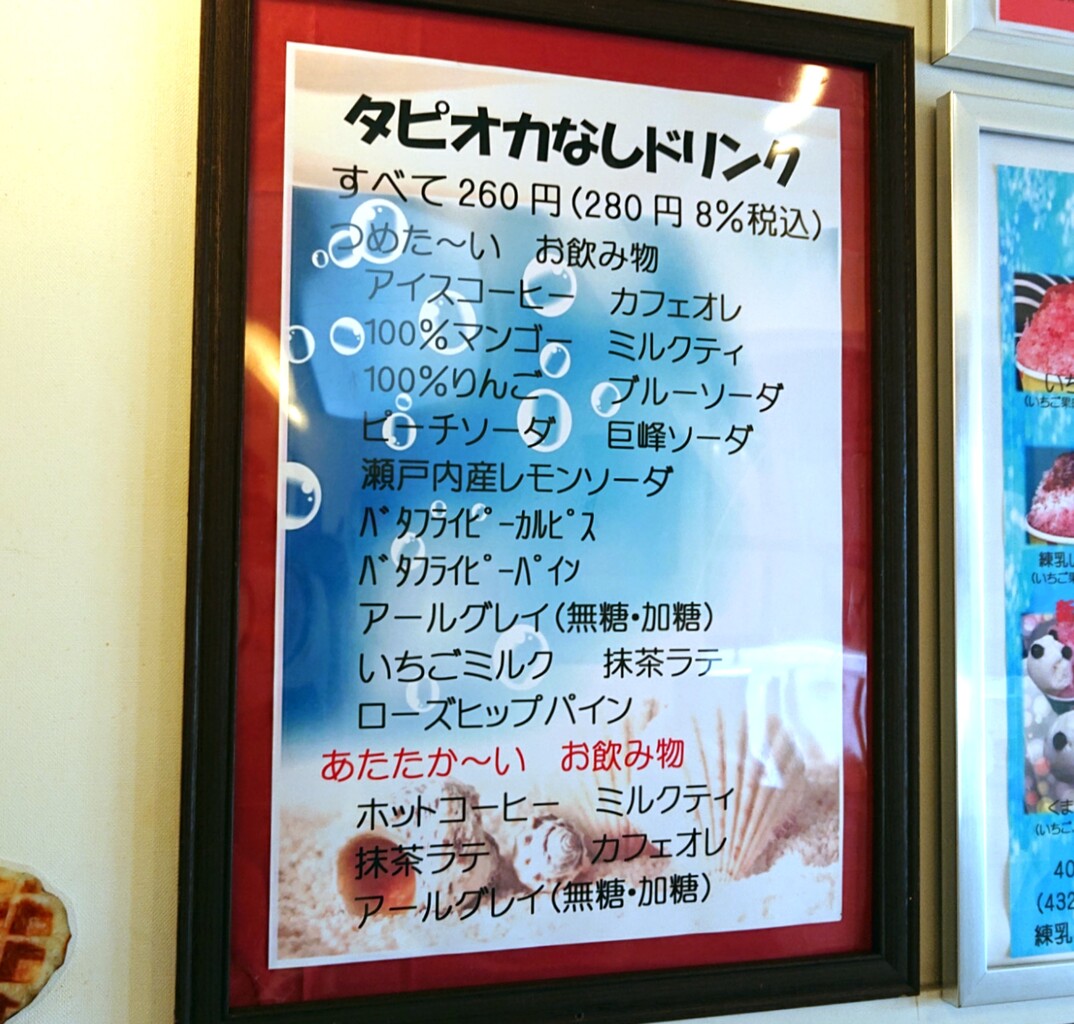 タピオカなしドリンク
すべて 260 円 (280 円 8%税込)
つめた～い　お飲み物
アイスコーヒー　カフェオレ
100%マンゴー　ミルクティ
100%りんご　ブルーソーダ
ピーチソーダ　巨峰ソーダ
瀬戸内産レモンソーダ
ﾊﾞﾀﾌﾗｲﾋﾟｰｶﾙﾋﾟｽ
ﾊﾞﾀﾌﾗｲﾋﾟｰﾊﾟｲﾝ
アールグレイ(無糖・加糖)
いちごミルク　抹茶ラテ
ローズヒップパイン
あたたか～い　お飲み物
ホットコーヒー　ミルクティ
抹茶ラテ　カフェオレ
アールグレイ(無糖・加糖)
練乳
(いちご
くま
(いちご
40
(432
練乳